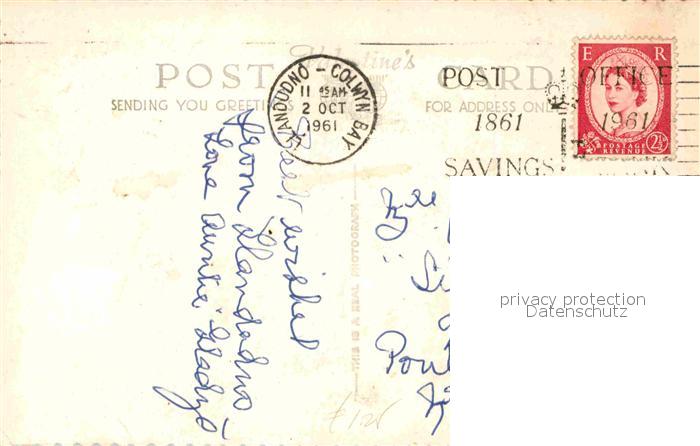 Valentine's
POST CARD
SENDING YOU GREETINGS
FOR ADDRESS ONLY
LLANDUDNO - COLWYN BAY
11 45 AM
2 OCT
1961
POST OFFICE
1861 1961
SAVINGS
E R
POSTAGE
REVENUE
2½
Best wishes
from Llandudno
Love Auntie Gladys
THIS IS A REAL PHOTOGRAPH
privacy protection
Datenschutz